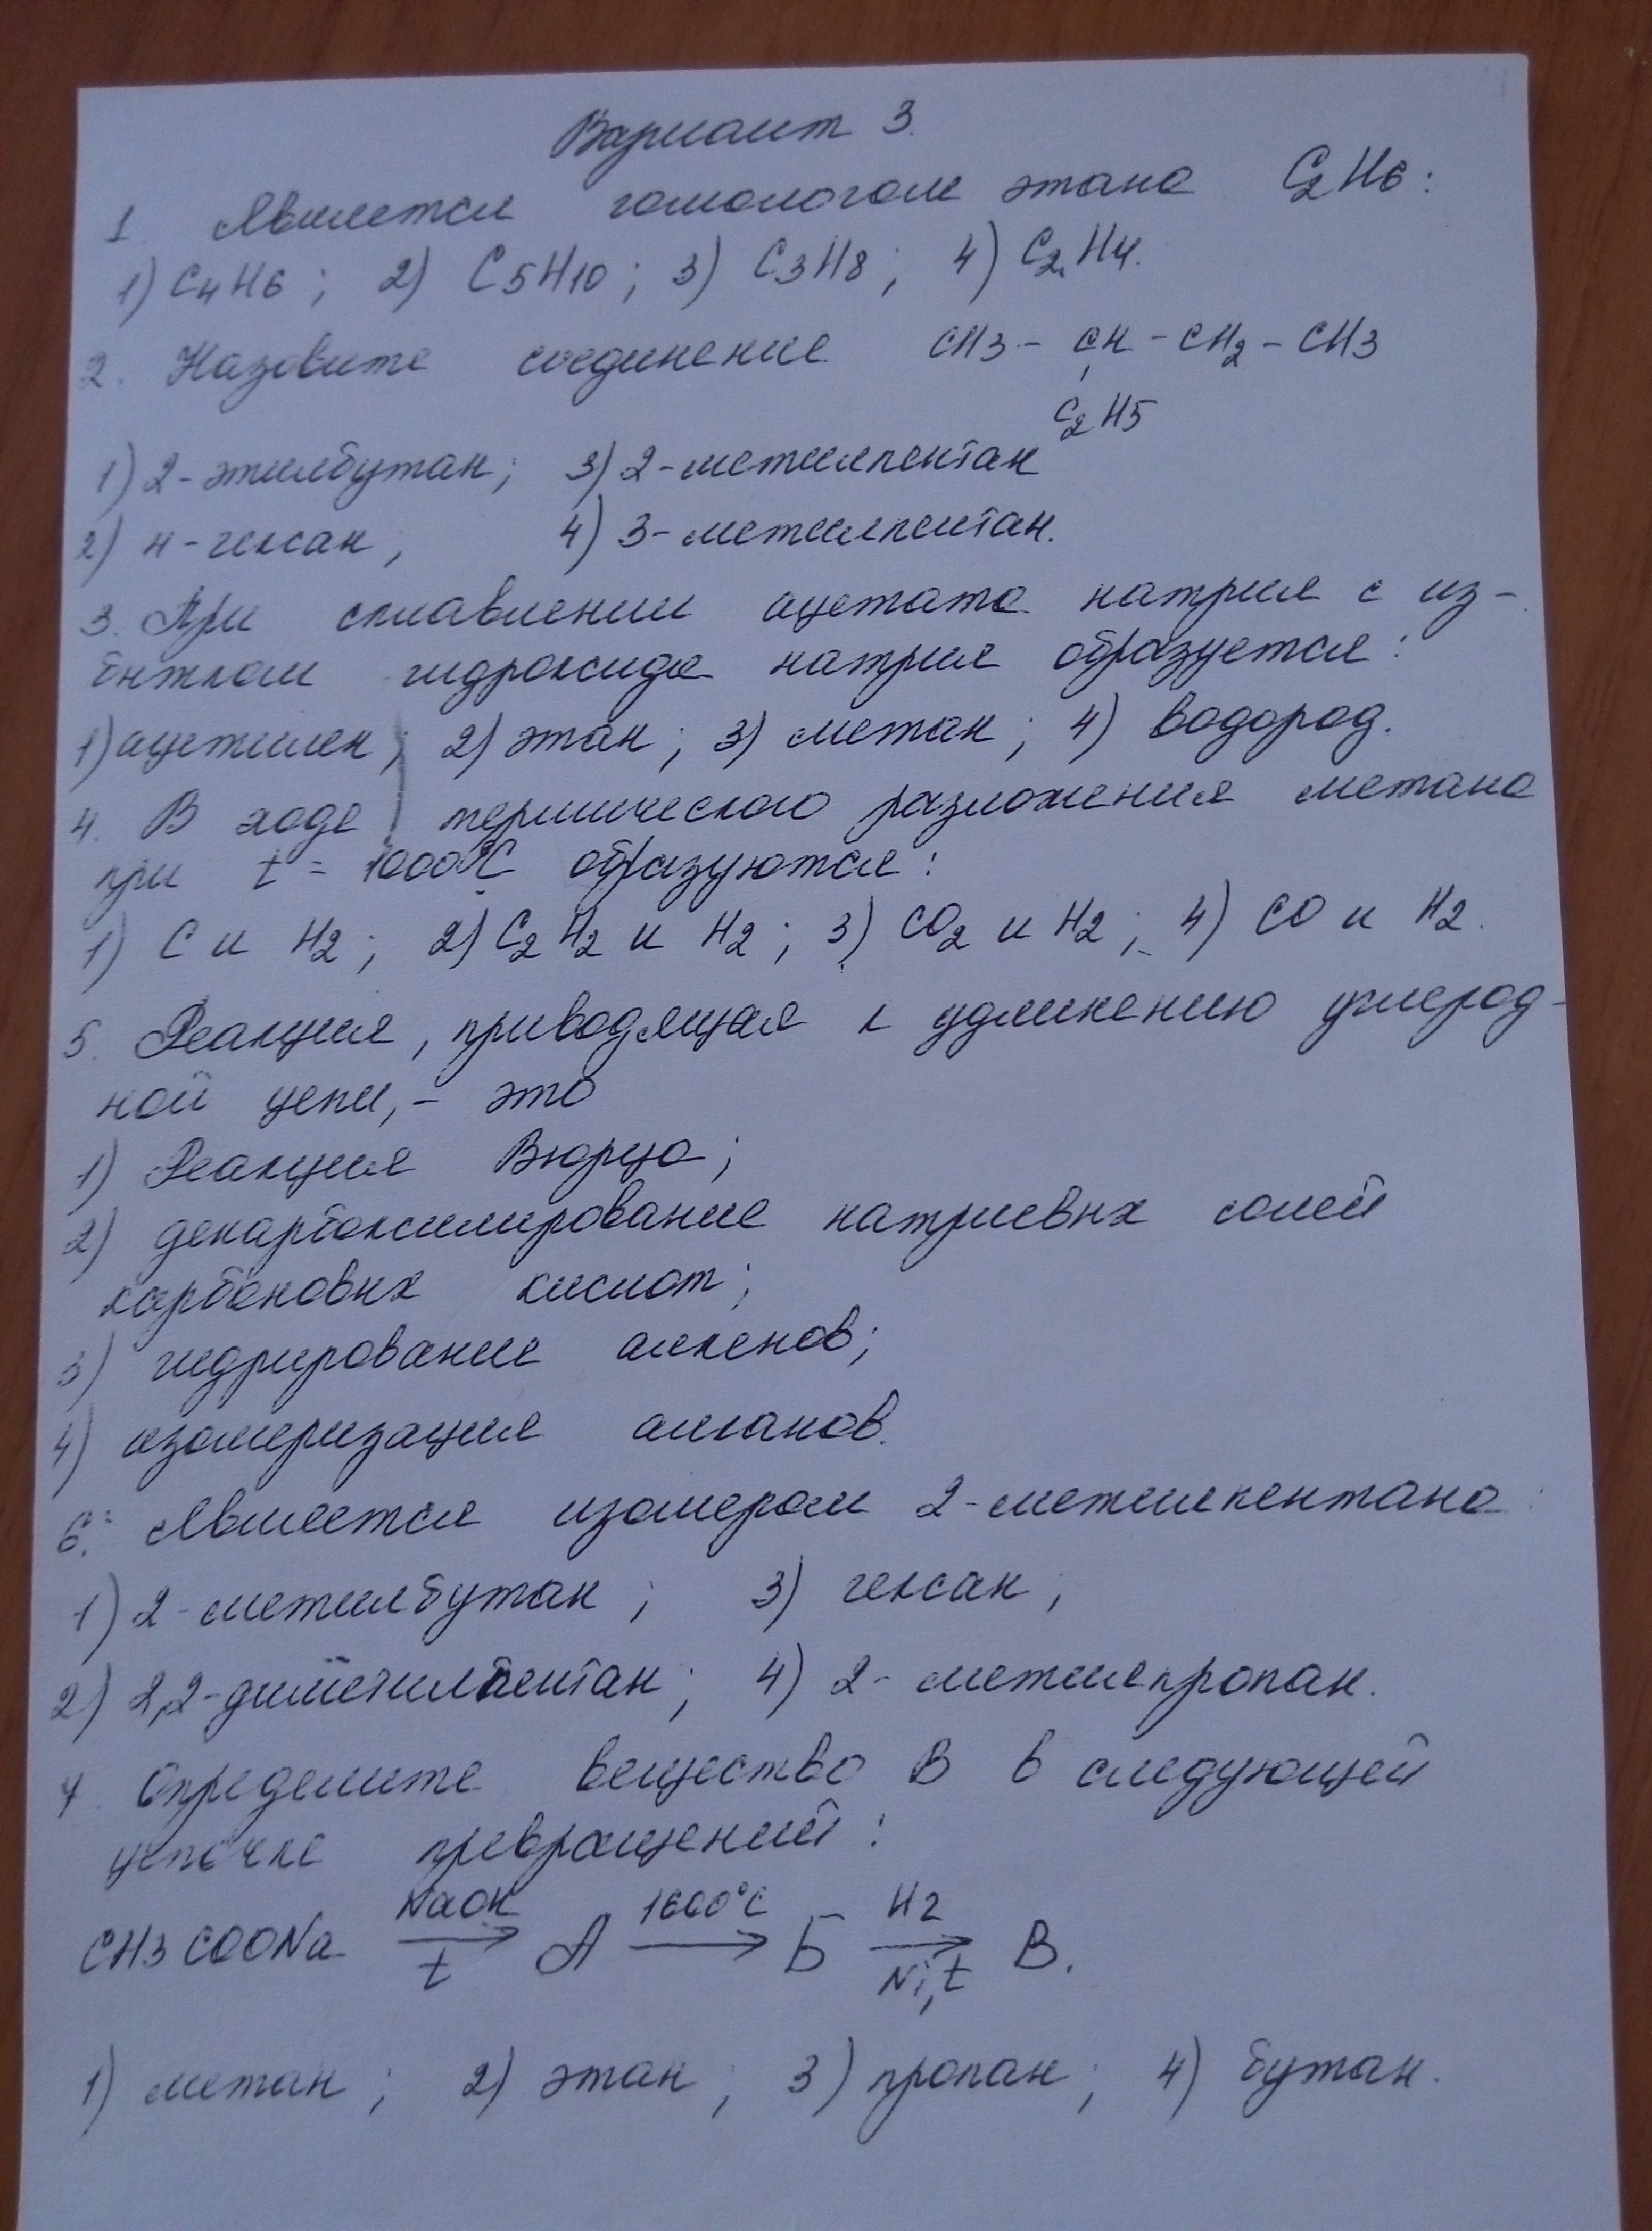 Вариант 3.
1. Является гомологом этана C2H6:
1) C4H6; 2) C5H10; 3) C3H8; 4) C2H4.
2. Назовите соединение CH3 - CH - CH2 - CH3
C2H5
1) 2-этилбутан; 3) 2-метилпентан
2) н-гексан; 4) 3-метилпентан.
3. При сплавлении ацетата натрия с из-
бытком гидроксида натрия образуется:
1) ацетилен; 2) этан; 3) метан; 4) водород.
4. В ходе термического разложения метана
при t = 1000°C образуются:
1) C и H2; 2) C2H2 и H2; 3) CO2 и H2; 4) CO и H2.
5. Реакция, приводящая к удлинению углерод-
ной цепи, - это
1) Реакция Вюрца;
2) декарбоксилирование натриевых солей
карбоновых кислот;
3) гидрирование алкенов;
4) изомеризация алканов.
6. Является изомером 2-метилпентана:
1) 2-метилбутан; 3) гексан;
2) 2,2-диметилпентан; 4) 2-метилпропан.
7. Определите вещество В в следующей
цепочке превращений:
CH3COONa NaOH t → А 1600°C → Б H2 Ni, t → В.
1) метан; 2) этан; 3) пропан; 4) бутан.